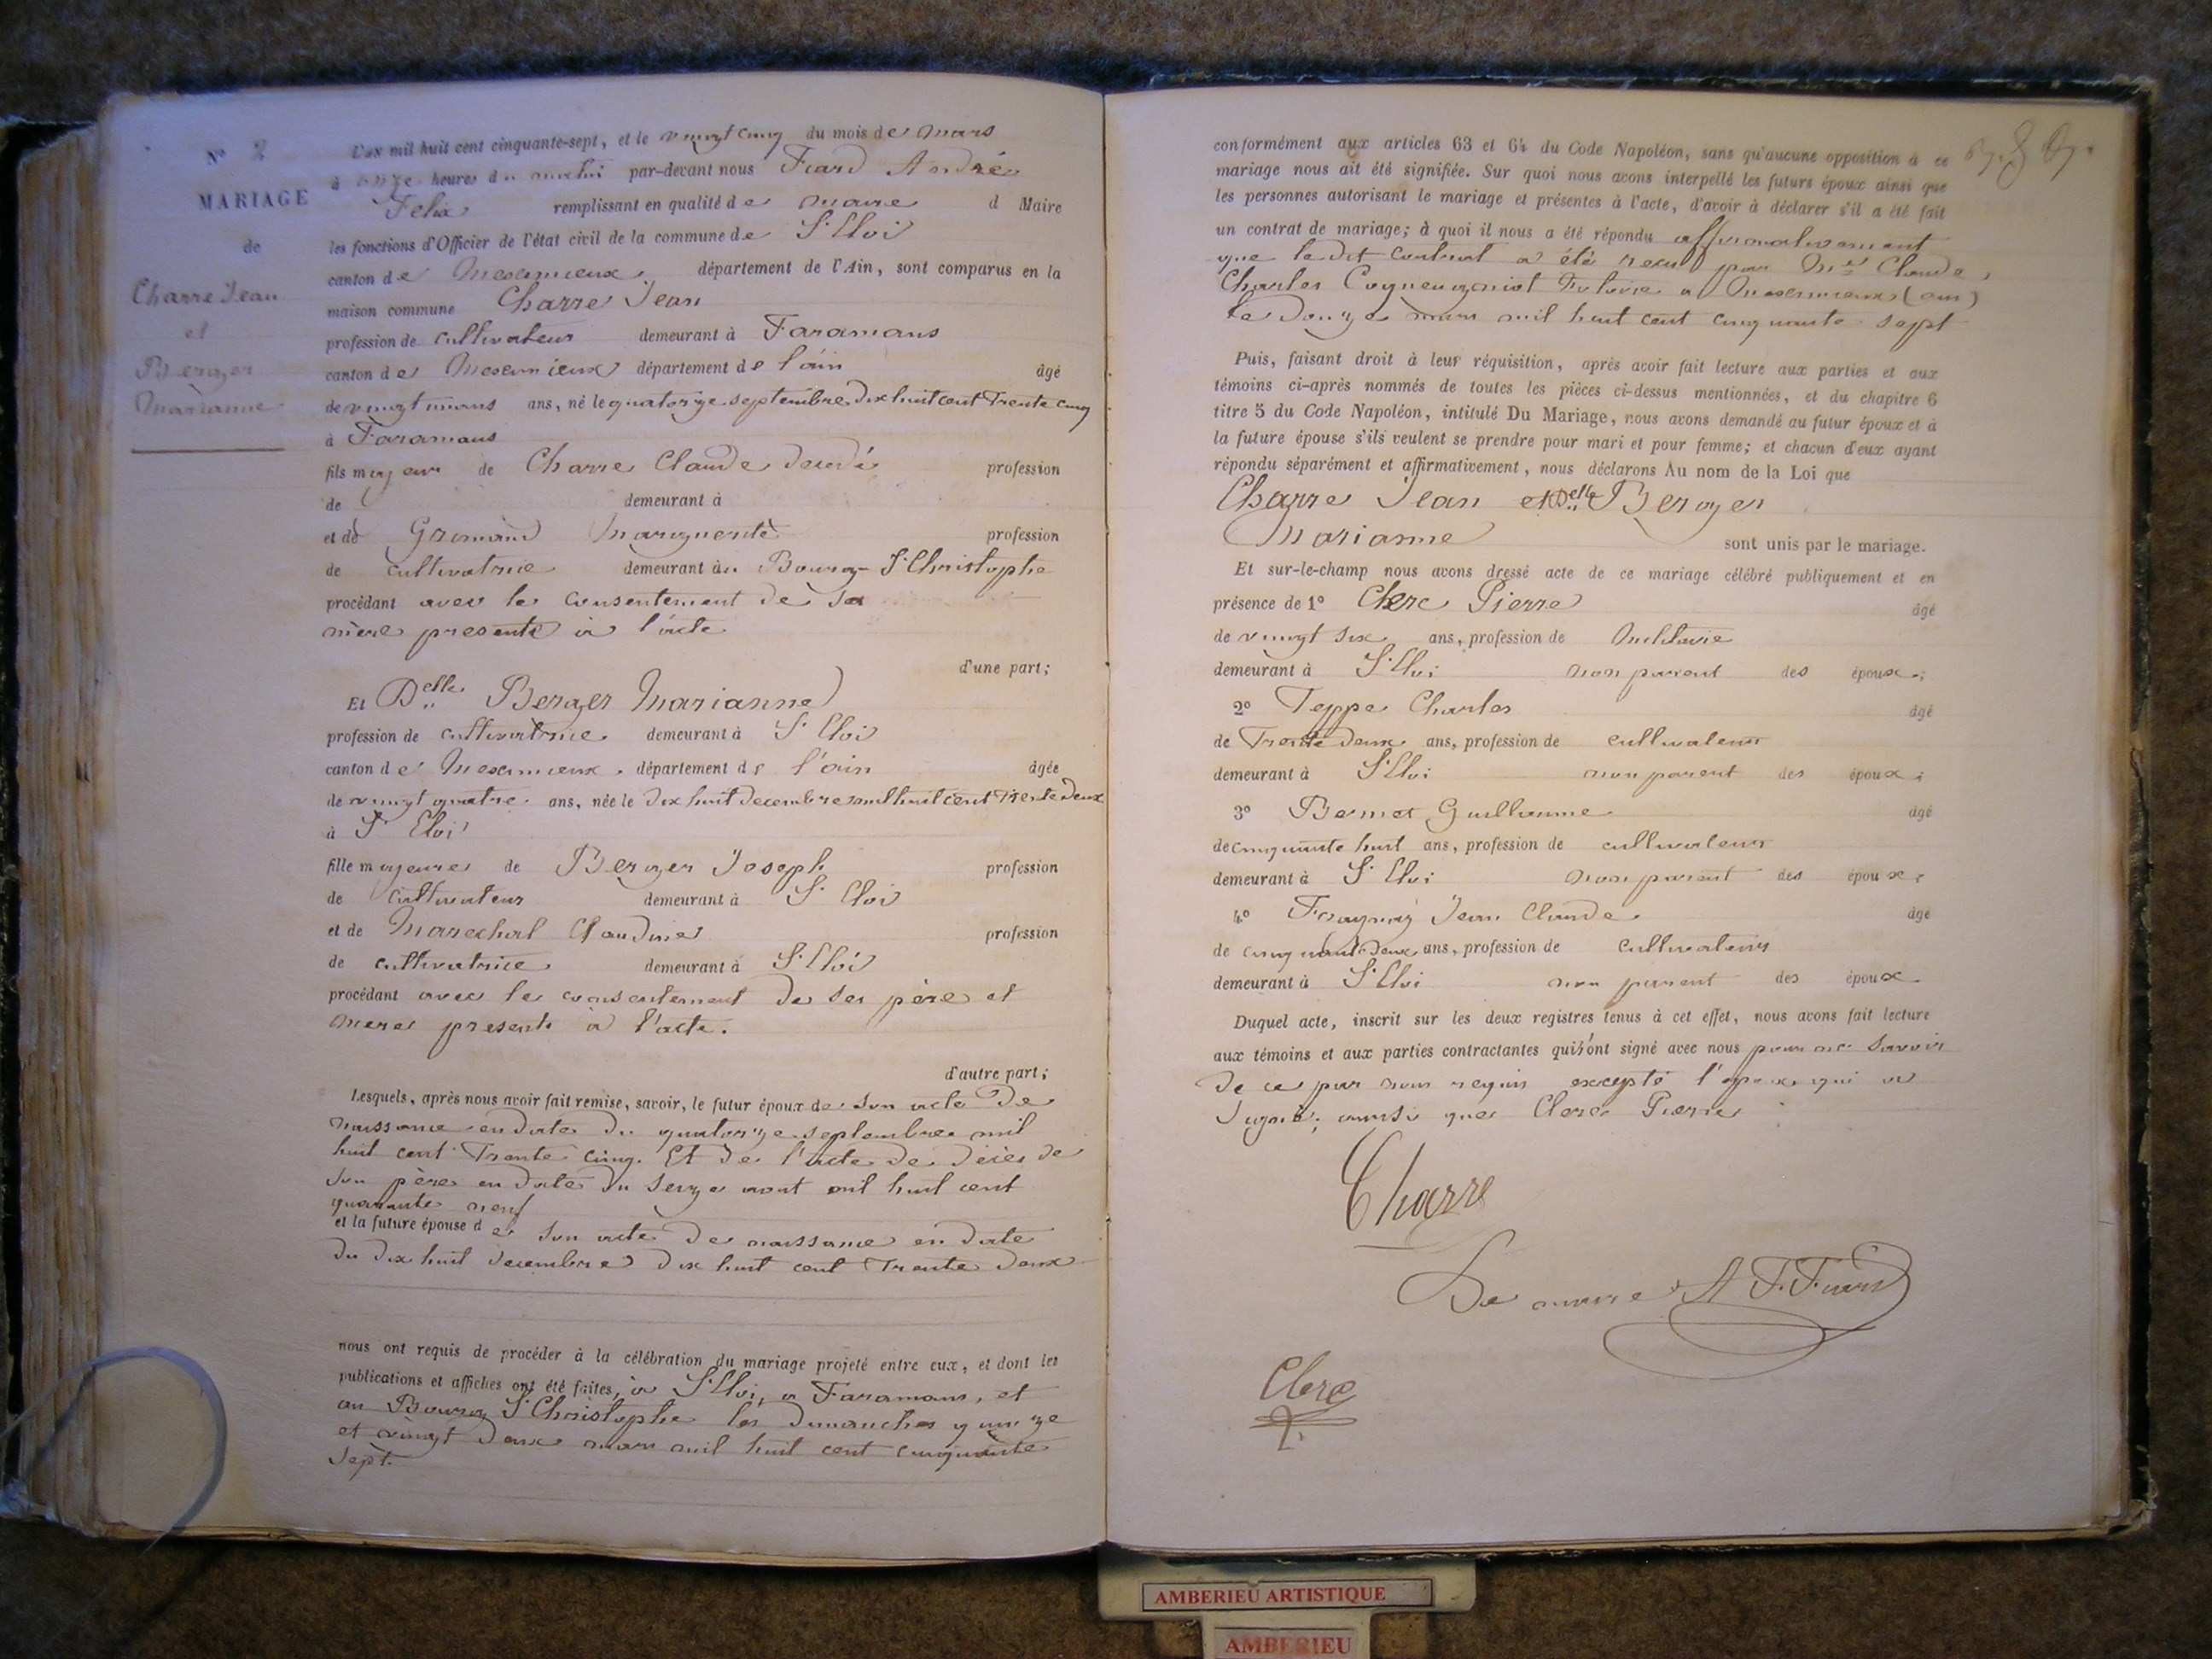 N° 2
MARIAGE
de
Charre Jean
et
Berger
Marianne
L'an mil huit cent cinquante-sept, et le vingt cinq du mois de mars
à onze heures du matin par-devant nous Fiard André
Felix remplissant en qualité de maire d Maire
les fonctions d'Officier de l'état civil de la commune de St Eloi
canton de Meximieux département de l'Ain, sont comparus en la
maison commune Charre Jean
profession de cultivateur demeurant à Faramans
canton de Meximieux département de l'ain âgé
de vingt un ans ans, né le quatorze septembre dix huit cent Trente cinq
à Faramans
fils majeur de Charre Claude décédé profession
de demeurant à
et de Grimand Marguerite profession
de cultivatrice demeurant au Bourg-St Christophe
procédant avec le consentement de sa
mère presente à l'acte
d'une part;
Et Delle Berger Marianne
profession de cultivatrice demeurant à St Eloi
canton de Meximieux département de l'ain âgée
de vingt quatre ans, née le dix huit decembre mil huit cent Trente deux
à St Eloi
fille majeure de Berger Joseph profession
de cultivateur demeurant à St Eloi
et de Marechal Claudine profession
de cultivatrice demeurant à St Eloi
procédant avec le consentement de ses père et
mere presents à l'acte.
d'autre part;
Lesquels, après nous avoir fait remise, savoir, le futur époux de son acte de
naissance en date du quatorze septembre mil
huit cent Trente cinq. Et de l'acte de décès de
son père en date du seize aout mil huit cent
quarante neuf
et la future épouse de son acte de naissance en date
du dix huit decembre dix huit cent Trente deux
nous ont requis de procéder à la célébration du mariage projeté entre eux, et dont les
publications et affiches ont été faites, à St Eloi, a Faramans, et
au Bourg St Christophe les dimanches quinze
et vingt deux mars mil huit cent cinquante
sept.
conformément aux articles 63 et 64 du Code Napoléon, sans qu'aucune opposition à ce
mariage nous ait été signifiée. Sur quoi nous avons interpellé les futurs époux ainsi que
les personnes autorisant le mariage et présentes à l'acte, d'avoir à déclarer s'il a été fait
un contrat de mariage; à quoi il nous a été répondu affirmativement
que le dit contrat a été recu par Me Claude
Charles Notaire a Meximieux (ain)
le douze mars mil huit cent cinquante sept
Puis, faisant droit à leur réquisition, après avoir fait lecture aux parties et aux
témoins ci-après nommés de toutes les pièces ci-dessus mentionnées, et du chapitre 6
titre 5 du Code Napoléon, intitulé Du Mariage, nous avons demandé au futur époux et à
la future épouse s'ils veulent se prendre pour mari et pour femme; et chacun d'eux ayant
répondu séparément et affirmativement, nous déclarons Au nom de la Loi que
Charre Jean et Delle Berger
Marianne sont unis par le mariage.
Et sur-le-champ nous avons dressé acte de ce mariage célébré publiquement et en
présence de 1° Clerc Pierre âgé
de vingt six ans, profession de Militaire
demeurant à St Eloi non parent des époux;
2° Teppe Charles âgé
de Trente deux ans, profession de cultivateur
demeurant à St Eloi non parent des époux;
3° Bernet Guillaume âgé
de cinquante huit ans, profession de cultivateur
demeurant à St Eloi non parent des époux;
4° Jean Claude âgé
de cinquante deux ans, profession de cultivateur
demeurant à St Eloi non parent des époux.
Duquel acte, inscrit sur les deux registres tenus à cet effet, nous avons fait lecture
aux témoins et aux parties contractantes qui n'ont signé avec nous pour ne savoir
de ce par nous requis excepté l'epoux qui a
signé; ainsi que Clerc Pierre
Charre
Le maire A F. Fiard
Clerc
AMBERIEU ARTISTIQUE
AMBERIEU